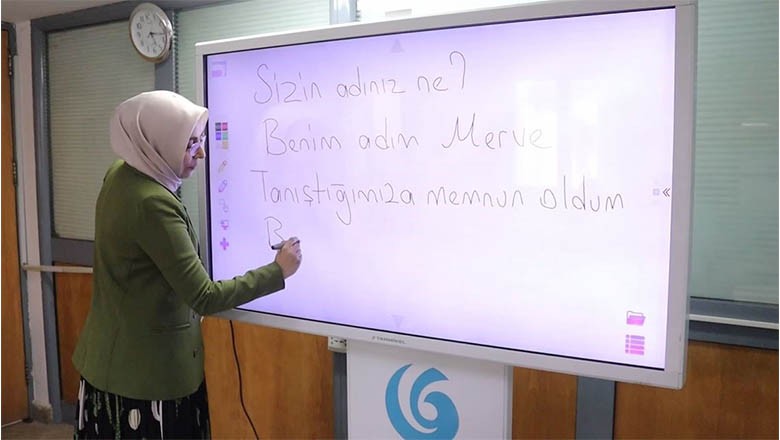 Sizin adınız ne?
Benim adım Merve
Tanıştığımıza memnun oldum
B